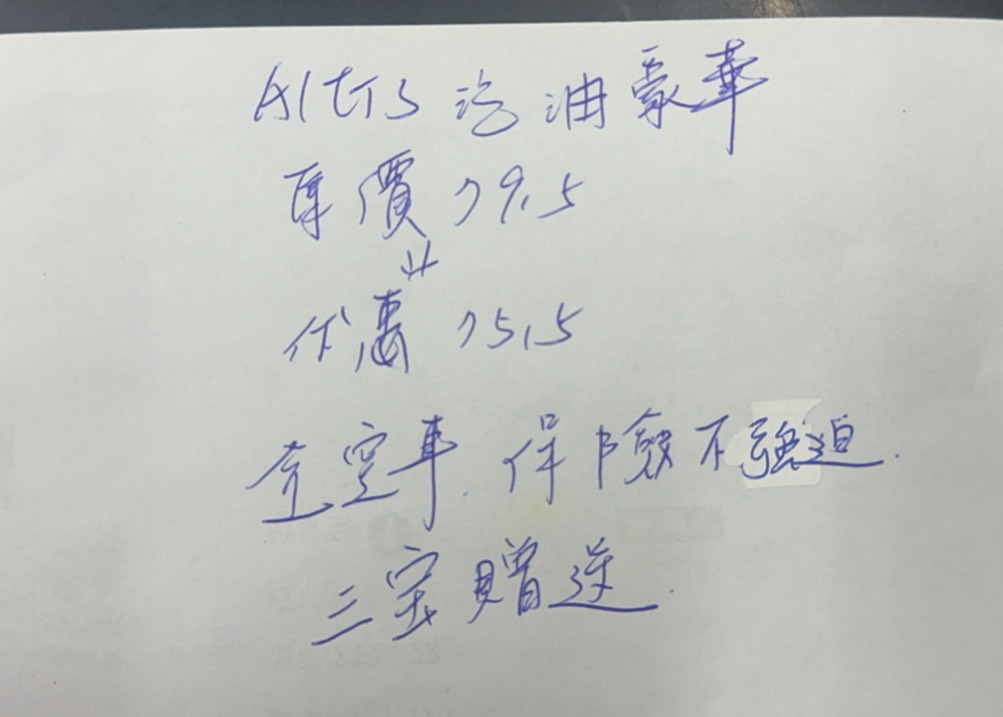 Altis 汽油豪華
車價 79.5
優惠 75.5
空車. 保險不強迫.
三寶贈送.